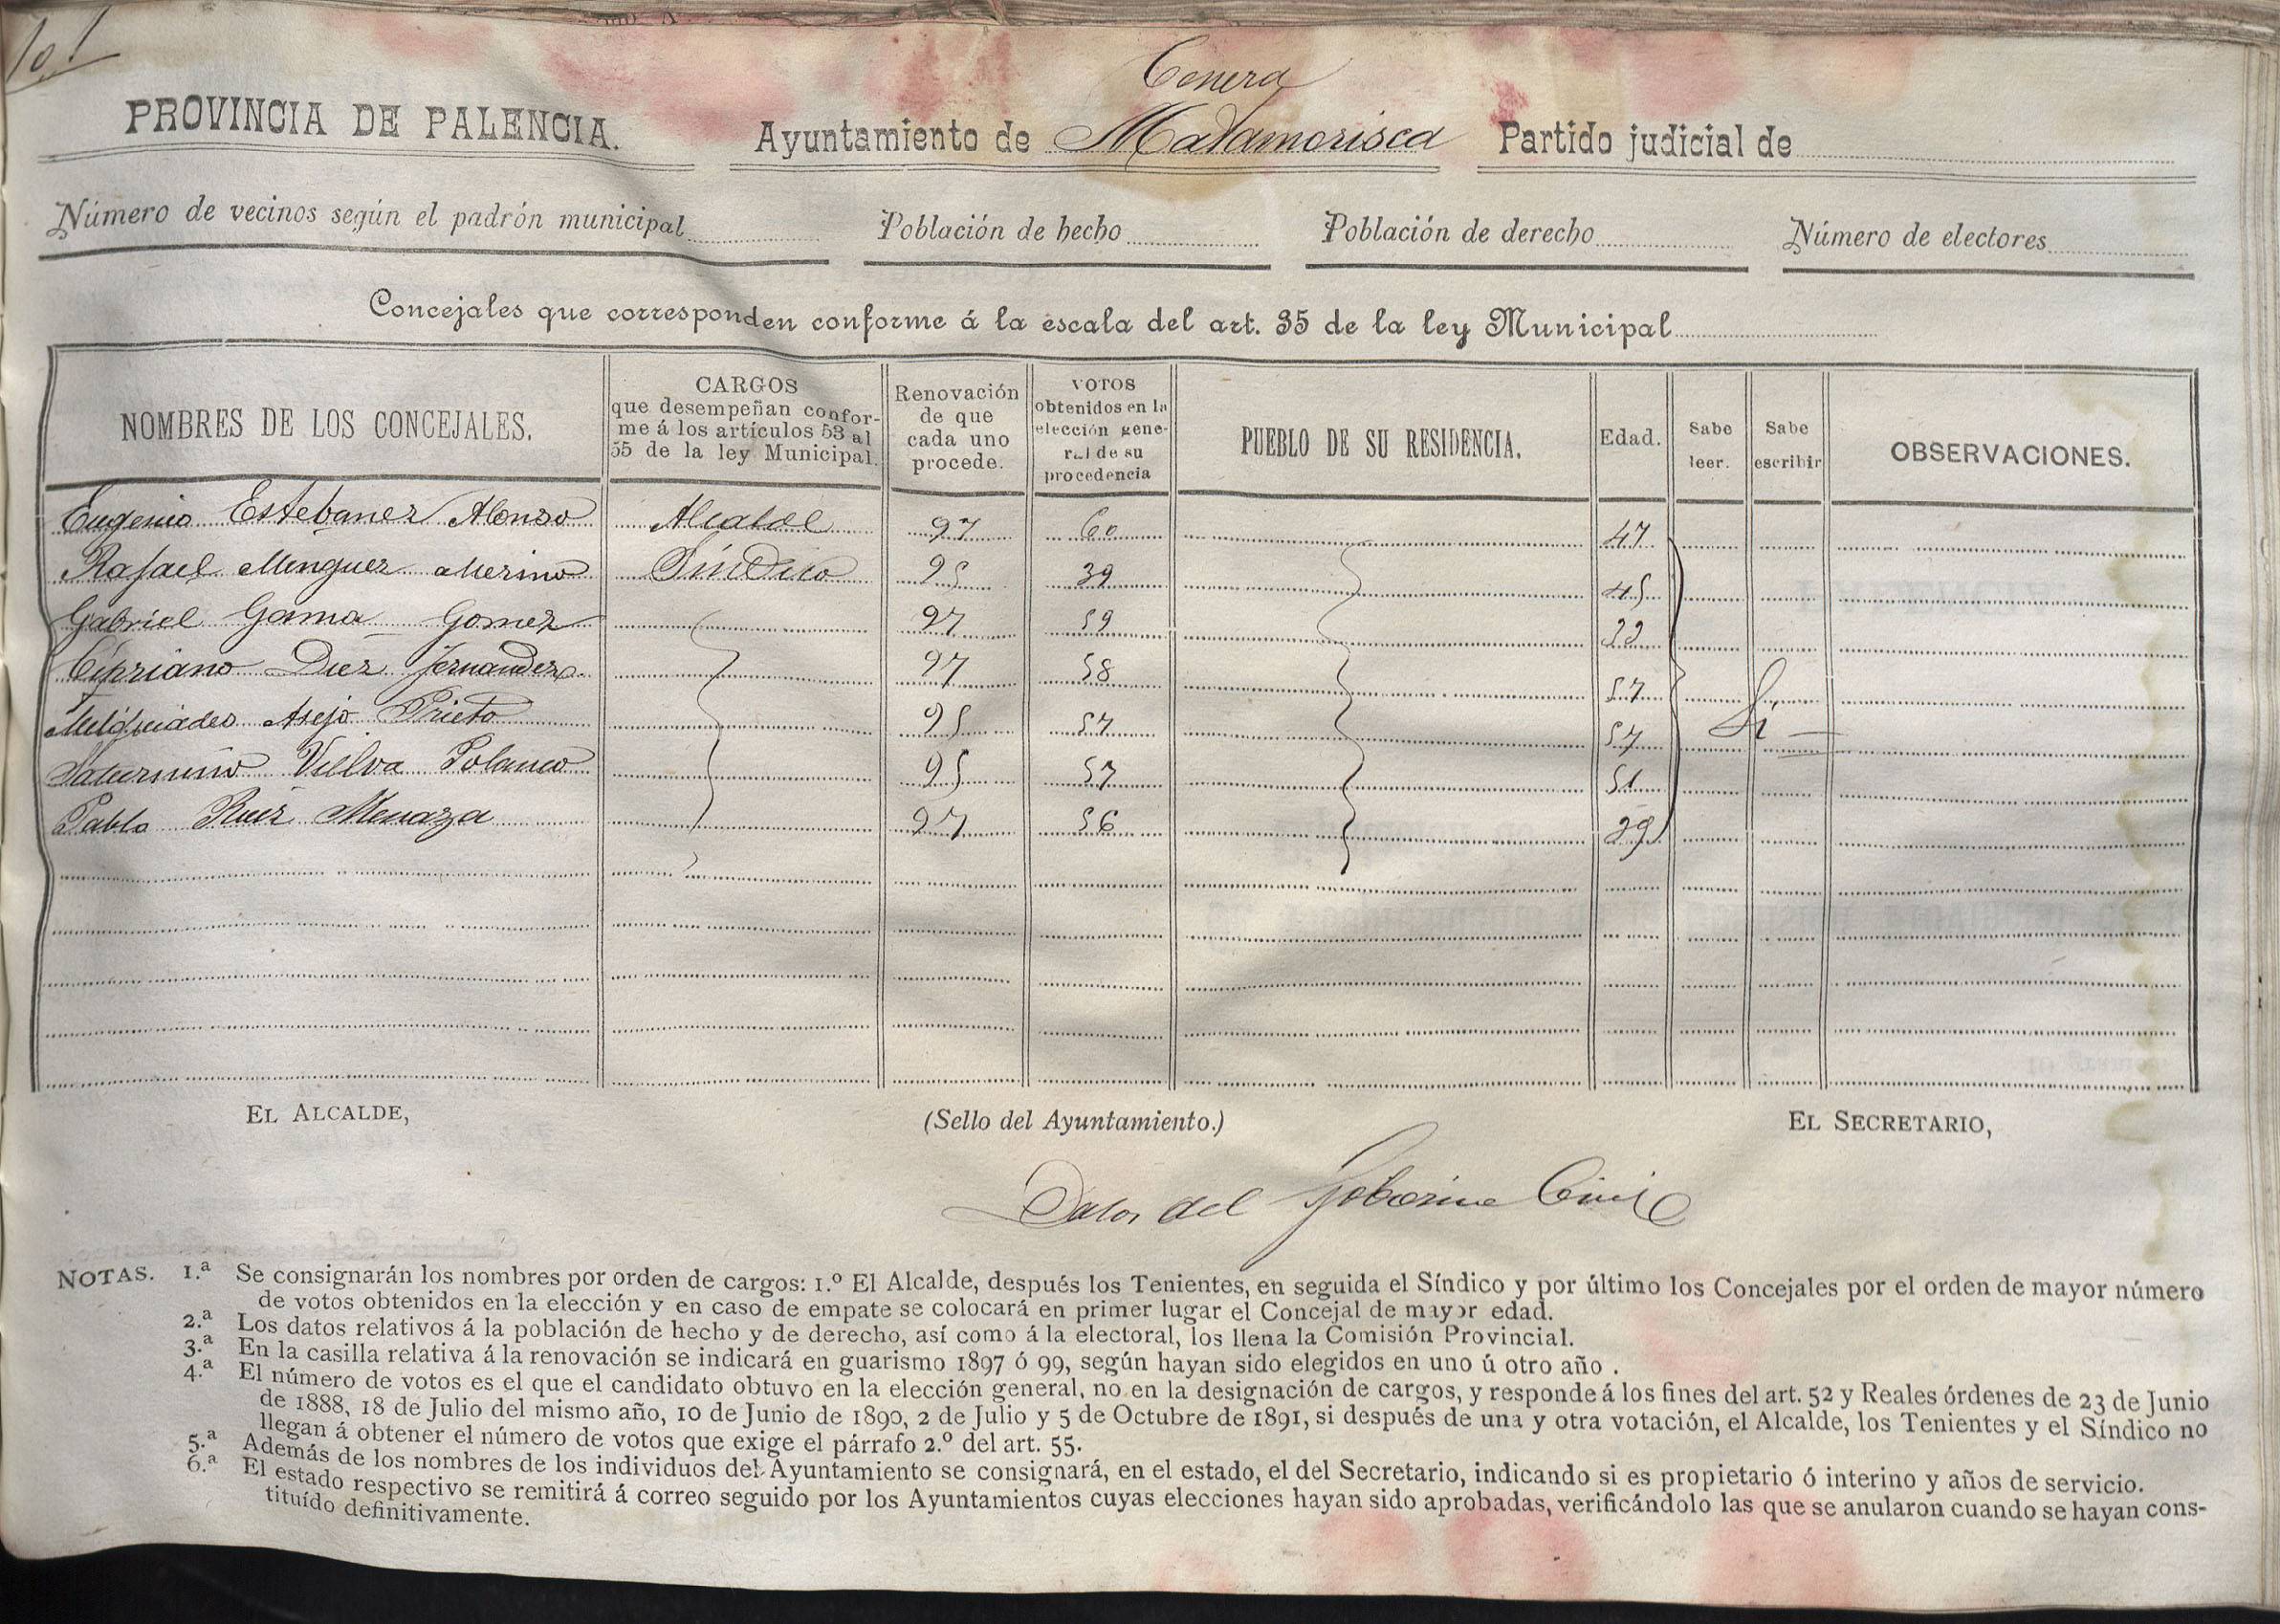 101
Cenera
PROVINCIA DE PALENCIA. Ayuntamiento de Matamorisca Partido judicial de
Número de vecinos según el padrón municipal Población de hecho Población de derecho Número de electores
Concejales que corresponden conforme á la escala del art. 35 de la ley Municipal
NOMBRES DE LOS CONCEJALES. CARGOS que desempeñan confor- me á los artículos 53 al 55 de la ley Municipal. Renovación de que cada uno procede. VOTOS obtenidos en la elección gene- ral de su procedencia PUEBLO DE SU RESIDENCIA. Edad. Sabe leer. Sabe escribir OBSERVACIONES.
Eugenio Estebanez Alonso Alcalde 97 60 47
Rafael Minguez Merino Síndico 95 39 45
Gabriel Gama Gomez 97 59
Cipriano Diez Fernandez 97 58 57
Melquiades Asejo Prieto 95 57 57 Si
Saturnino Vielva Polanco 95 57 51
Pablo Ruiz Menaza 97 56 29
EL ALCALDE, (Sello del Ayuntamiento.) EL SECRETARIO,
Datos del Gobierno Civil
NOTAS. 1.ª Se consignarán los nombres por orden de cargos: 1.º El Alcalde, después los Tenientes, en seguida el Síndico y por último los Concejales por el orden de mayor número
de votos obtenidos en la elección y en caso de empate se colocará en primer lugar el Concejal de mayor edad.
2.ª Los datos relativos á la población de hecho y de derecho, así como á la electoral, los llena la Comisión Provincial.
3.ª En la casilla relativa á la renovación se indicará en guarismo 1897 ó 99, según hayan sido elegidos en uno ú otro año .
4.ª El número de votos es el que el candidato obtuvo en la elección general, no en la designación de cargos, y responde á los fines del art. 52 y Reales órdenes de 23 de Junio
de 1888, 18 de Julio del mismo año, 10 de Junio de 1890, 2 de Julio y 5 de Octubre de 1891, si después de una y otra votación, el Alcalde, los Tenientes y el Síndico no
llegan á obtener el número de votos que exige el párrafo 2.º del art. 55.
5.ª Además de los nombres de los individuos del Ayuntamiento se consignará, en el estado, el del Secretario, indicando si es propietario ó interino y años de servicio.
6.ª El estado respectivo se remitirá á correo seguido por los Ayuntamientos cuyas elecciones hayan sido aprobadas, verificándolo las que se anularon cuando se hayan cons-
tituído definitivamente.